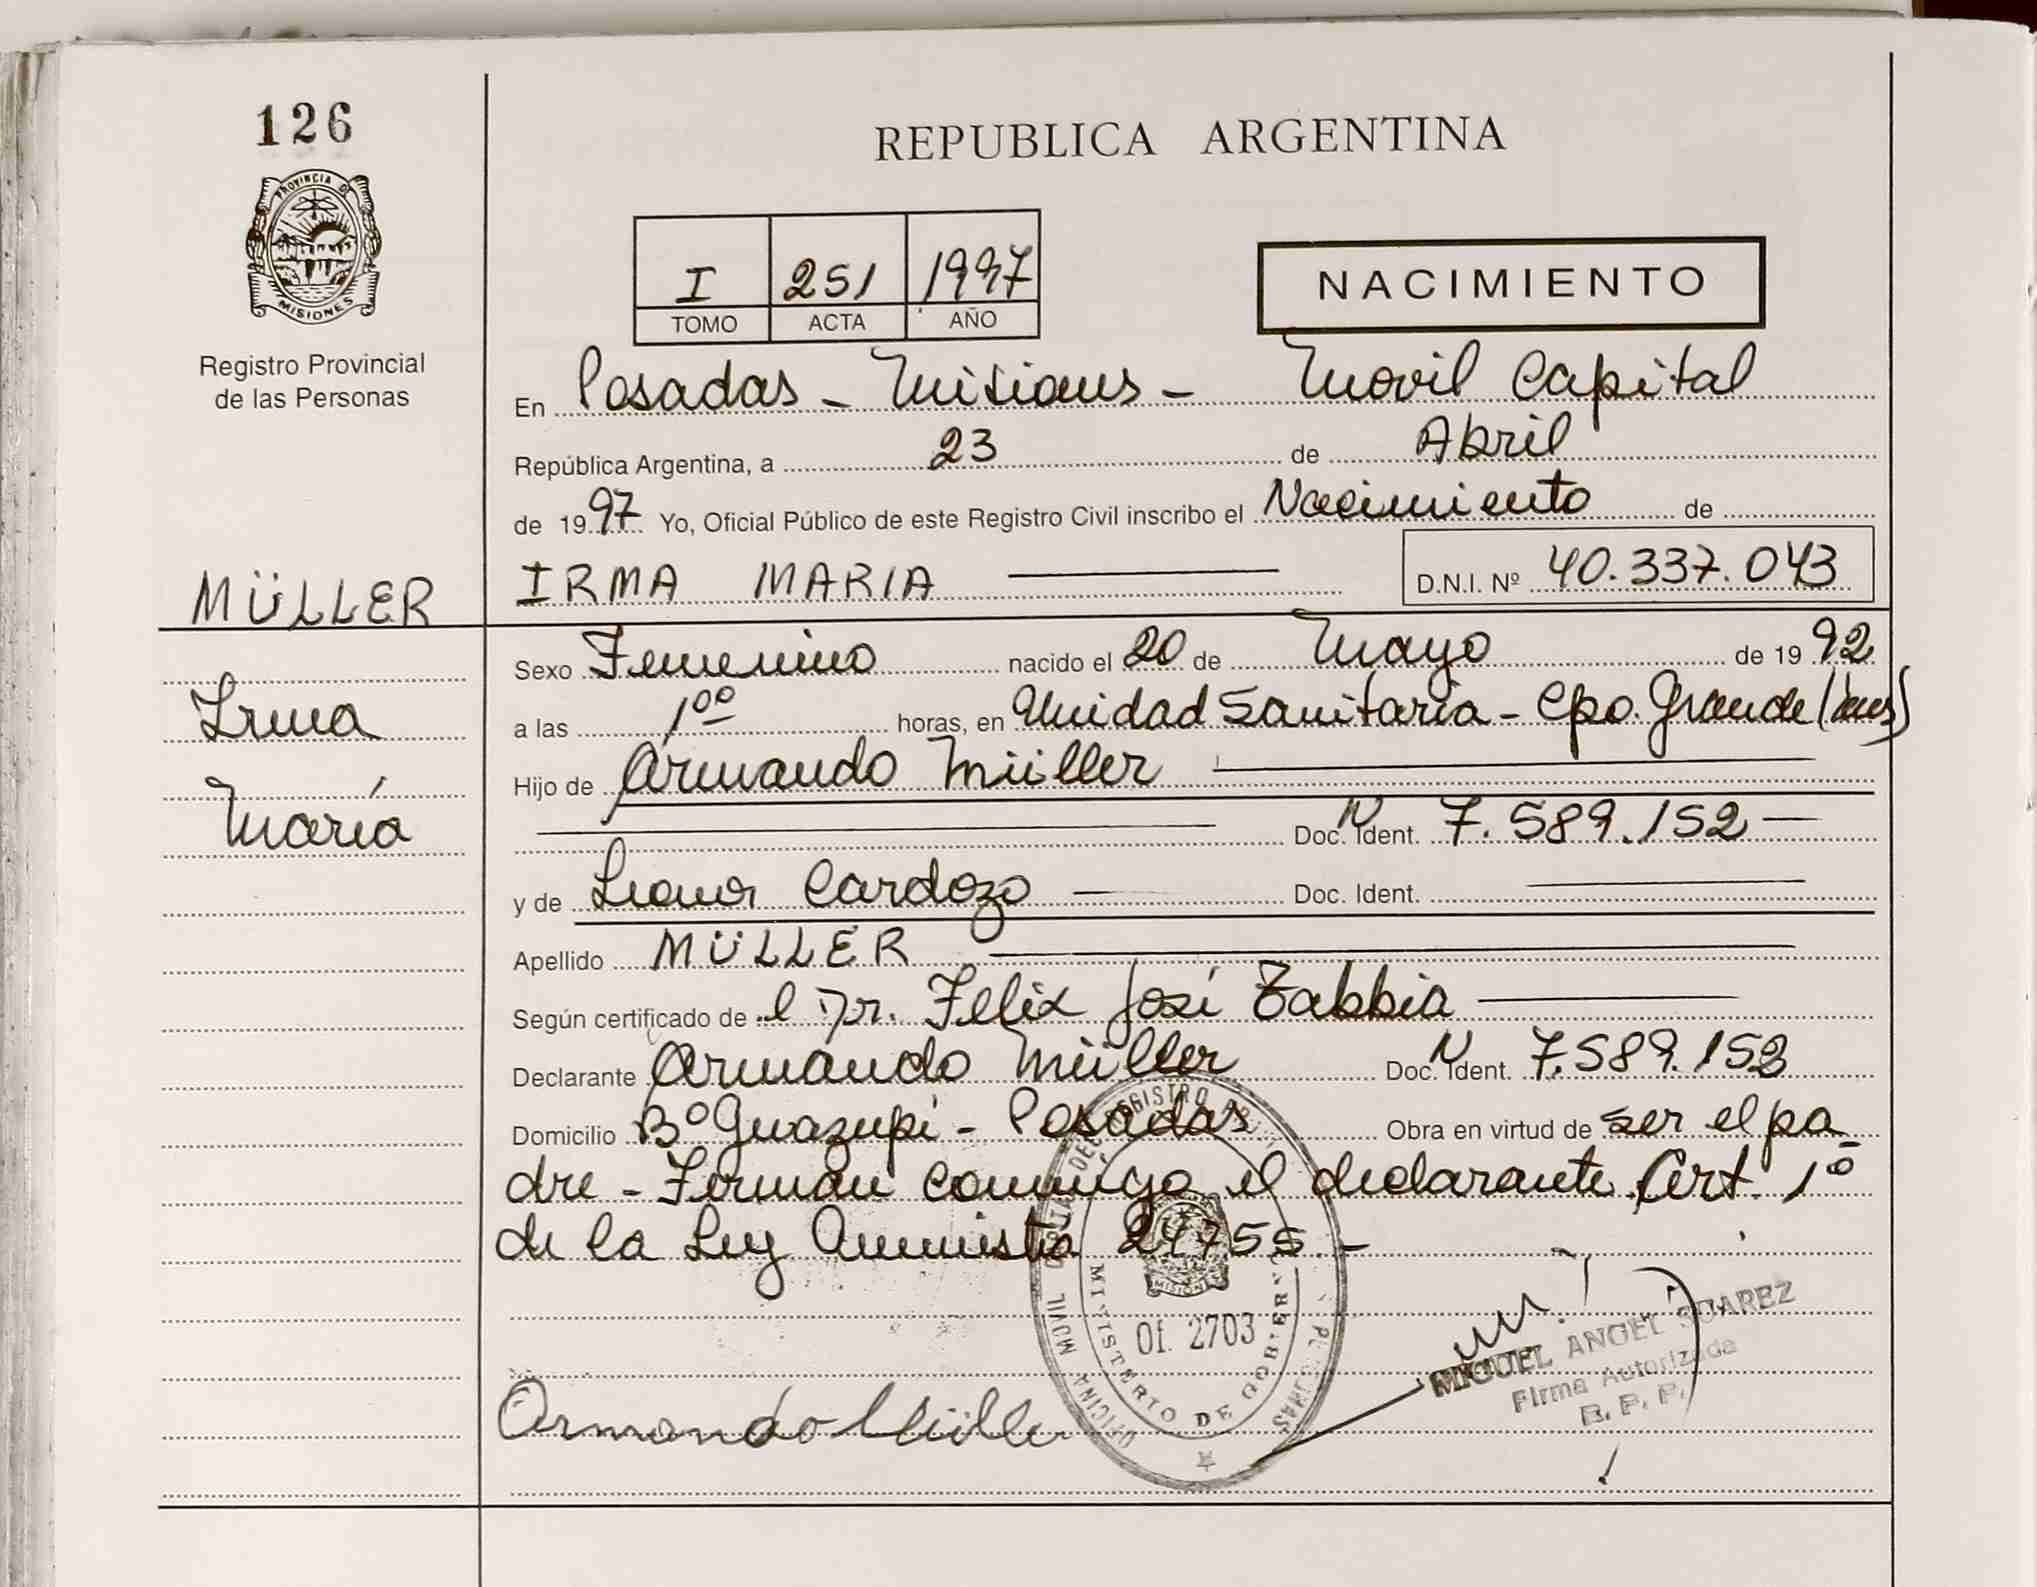 126
PROVINCIA DE
MISIONES
Registro Provincial
de las Personas
MÜLLER
Irma
María
REPUBLICA ARGENTINA
I 251 1997
TOMO ACTA AÑO
NACIMIENTO
En Posadas - Misiones - Movil Capital
República Argentina, a 23 de Abril
de 1997 Yo, Oficial Público de este Registro Civil inscribo el Nacimiento de
IRMA MARIA D.N.I. Nº 40.337.043
Sexo Femenino nacido el 20 de Mayo de 1992
a las 1ºº horas, en Unidad Sanitaria - Cpo. Grande
Hijo de Armando Müller
Doc. Ident. N 7.589.152
y de Leonor Cardozo Doc. Ident.
Apellido MÜLLER
Según certificado de l Dr. Felix José Zabbia
Declarante Armando Müller Doc. Ident. N 7.589.152
Domicilio Bº Guazupi - Posadas Obra en virtud de ser el pa
dre - Firman conmigo el declarante. Art. 1º
de la Ley Amnistia 24755.-
Armando Müller
MISIONES
Of. 2703
MINISTERIO DE GOBIERNO
OFICINA MOVIL
MIGUEL ANGEL SUAREZ
Firma Autorizada
R. P. P.